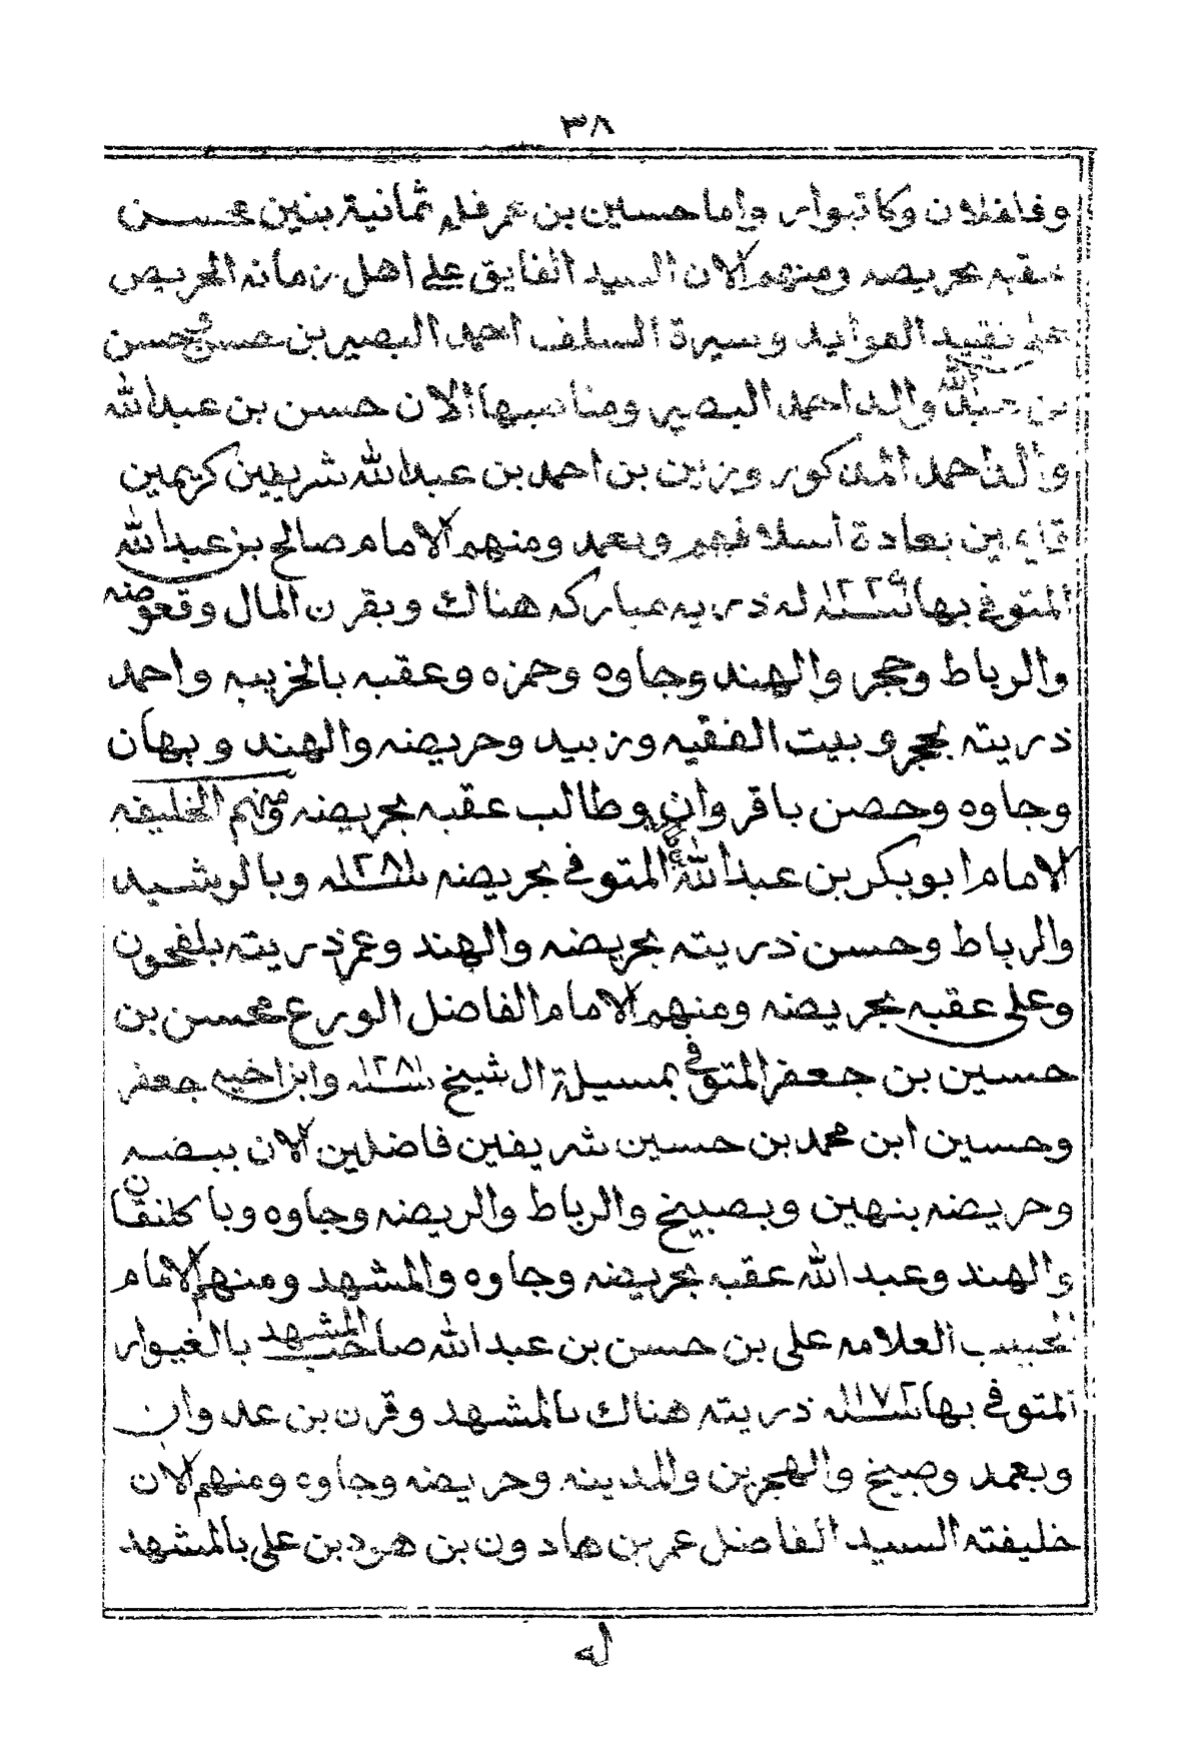 ٣٨
وفافلان وكاتبوار واما حسين بن عمر فله ثمانية بنين محسن
عقبه بحريضه ومنهم الان السيد الفايق على اهل زمانه الحريص
على تقييد الفوايد وسيرة السلف احمد البصير بن حسن بن حسن
بن عبدالله والد احمد البصير ومناصبها الان حسن بن عبدالله
والد احمد المذكور وزين بن احمد بن عبدالله شريفين كريمين
قايمين بعادة أسلافهم وبعمد ومنهم الامام صالح بن عبدالله
المتوفى بها سنه ١٢٧٩ له ذريه مباركه هناك وبقرن المال وقعوضه
والرباط وحجر والهند وجاوه وحمزه وعقبه بالخريبه واحمد
ذريته بحجر وبيت الفقيه وزبيد وحريضه والهند وبهان
وجاوه وحصن باقروان وطالب عقبه بحريضه ومنهم الخليفه
الامام ابوبكر بن عبدالله المتوفى بحريضه سنه ١٢٨١ وبالرشيد
والرباط وحسن ذريته بحريضه والهند وعمر ذريته بلفحون
وعلى عقبه بحريضه ومنهم الامام الفاضل الورع محسن بن
حسين بن جعفر المتوفى بمسيلة ال شيخ سنه ١٢٨١ وابن اخيه جعفر
وحسين ابن محمد بن حسين شريفين فاضلين الان ببضه
وحريضه بنهين وبصبيخ والرباط والريضه وجاوه وبا كلنقان
والهند وعبدالله عقبه بحريضه وجاوه والمشهد ومنهم الامام
الحبيب العلامه على بن حسن بن عبدالله صاحب المشهد بالغيوار
المتوفى بها سنه ١١٧٢ ذريته هناك بالمشهد وقرن بن عدوان
وبعمد وصبيخ والهجرين والمدينه وحريضه وجاوه ومنهم الان
خليفته السيد الفاضل عمر بن هادون بن هود بن على بالمشهد
له